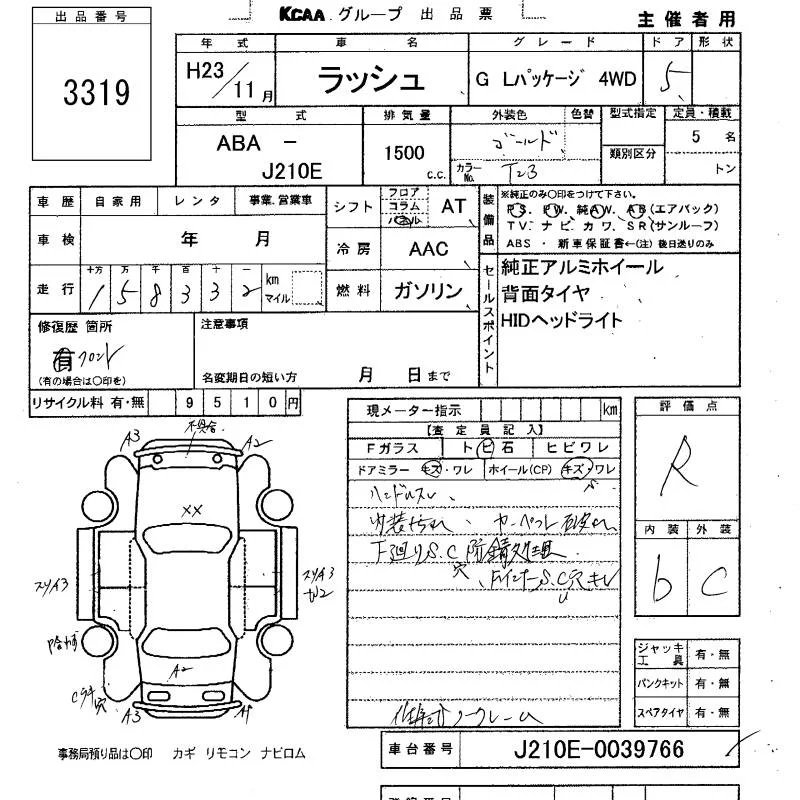 出品番号
KCAA グループ 出品票
主催者用
3319
年式 車名 グレード ドア 形状
H23/11月 ラッシュ G Lパッケージ 4WD 5
型式 排気量 外装色 色替 型式指定 定員・積載
ABA - J210E 1500 c.c. ゴールド 5 名
カラーNo. T23 類別区分 トン
車歴 自家用 レンタ 事業、営業車
シフト フロア コラム パネル AT
装備品 ※純正のみ〇印をつけて下さい。
PS、PW、純AW、AB(エアバック)
TV、ナビ、カワ、SR(サンルーフ)
ABS ・ 新車保証書←(注)後日送りのみ
車検 年 月
冷房 AAC
走行 十万 万 千 百 十 一 km マイル
1 5 8 3 3 2
燃料 ガソリン
セールスポイント 純正アルミホイール
背面タイヤ
HIDヘッドライト
修復歴 箇所
有 フロント
(有の場合は〇印を)
注意事項
名変期日の短い方 月 日まで
リサイクル料 有・無 9510円
現メーター指示 km
【査定員記入】
Fガラス トビ石 ヒビワレ
ドアミラー キズ・ワレ ホイール(CP) キズ・ワレ
ハンドルスレ、
内装ヨゴレ、
F廻りS.C 防錆処理
穴
評価点
R
内装 外装
b C
不具合
A3 A2
XX
スリA3
スリA3
W2
A2
穴
A3 A1
ジャッキ工具 有・無
パンクキット 有・無
スペアタイヤ 有・無
ノークレーム
事務局預り品は〇印 カギ リモコン ナビロム
車台番号 J210E-0039766